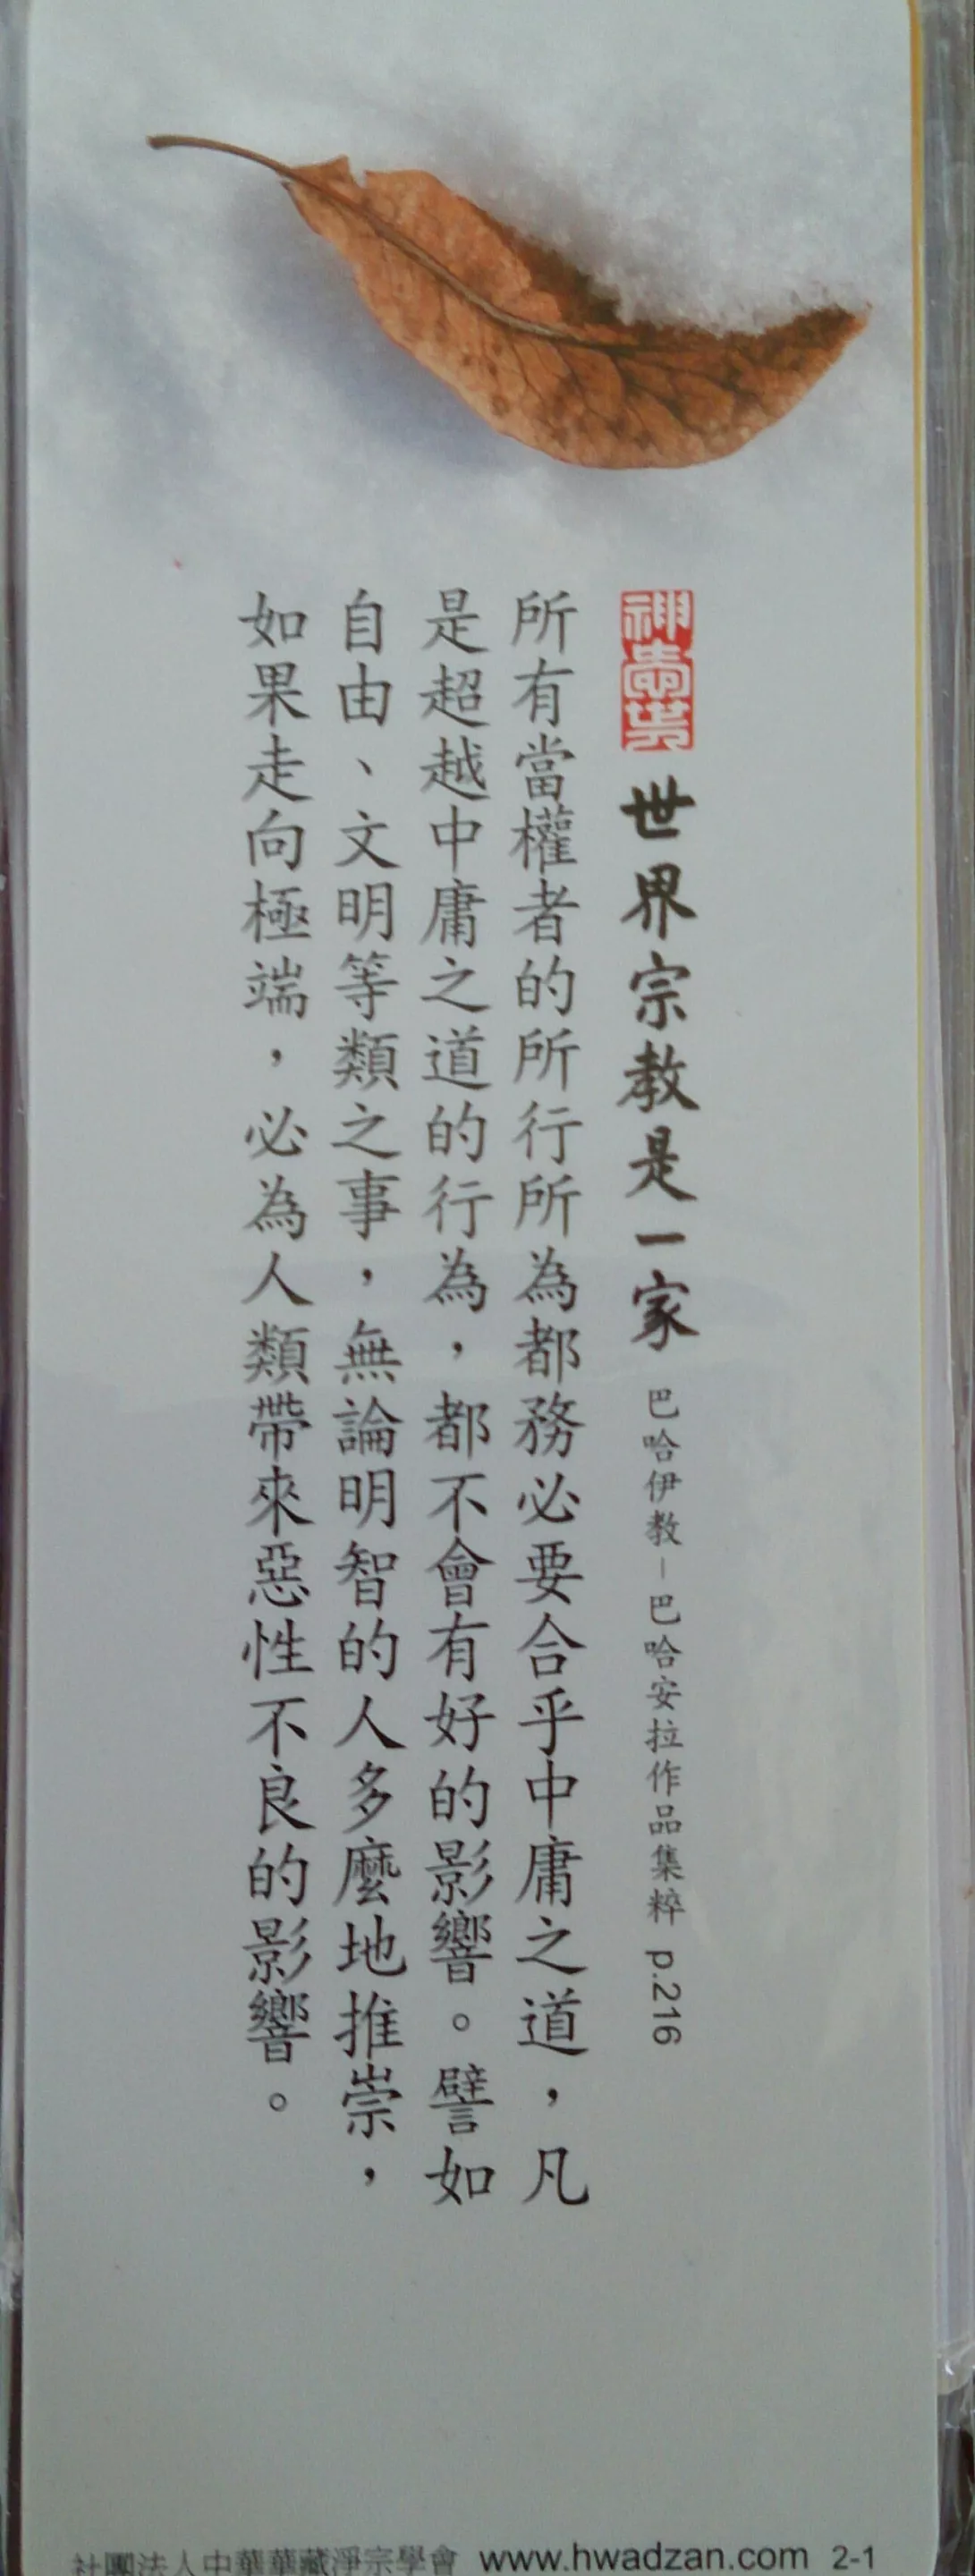 神愛世
世界宗教是一家 巴哈伊教－巴哈安拉作品集粹 p.216
所有當權者的所行所為都務必要合乎中庸之道，凡
是超越中庸之道的行為，都不會有好的影響。譬如
自由、文明等類之事，無論明智的人多麼地推崇，
如果走向極端，必為人類帶來惡性不良的影響。
社團法人中華華藏淨宗學會 www.hwadzan.com 2-1